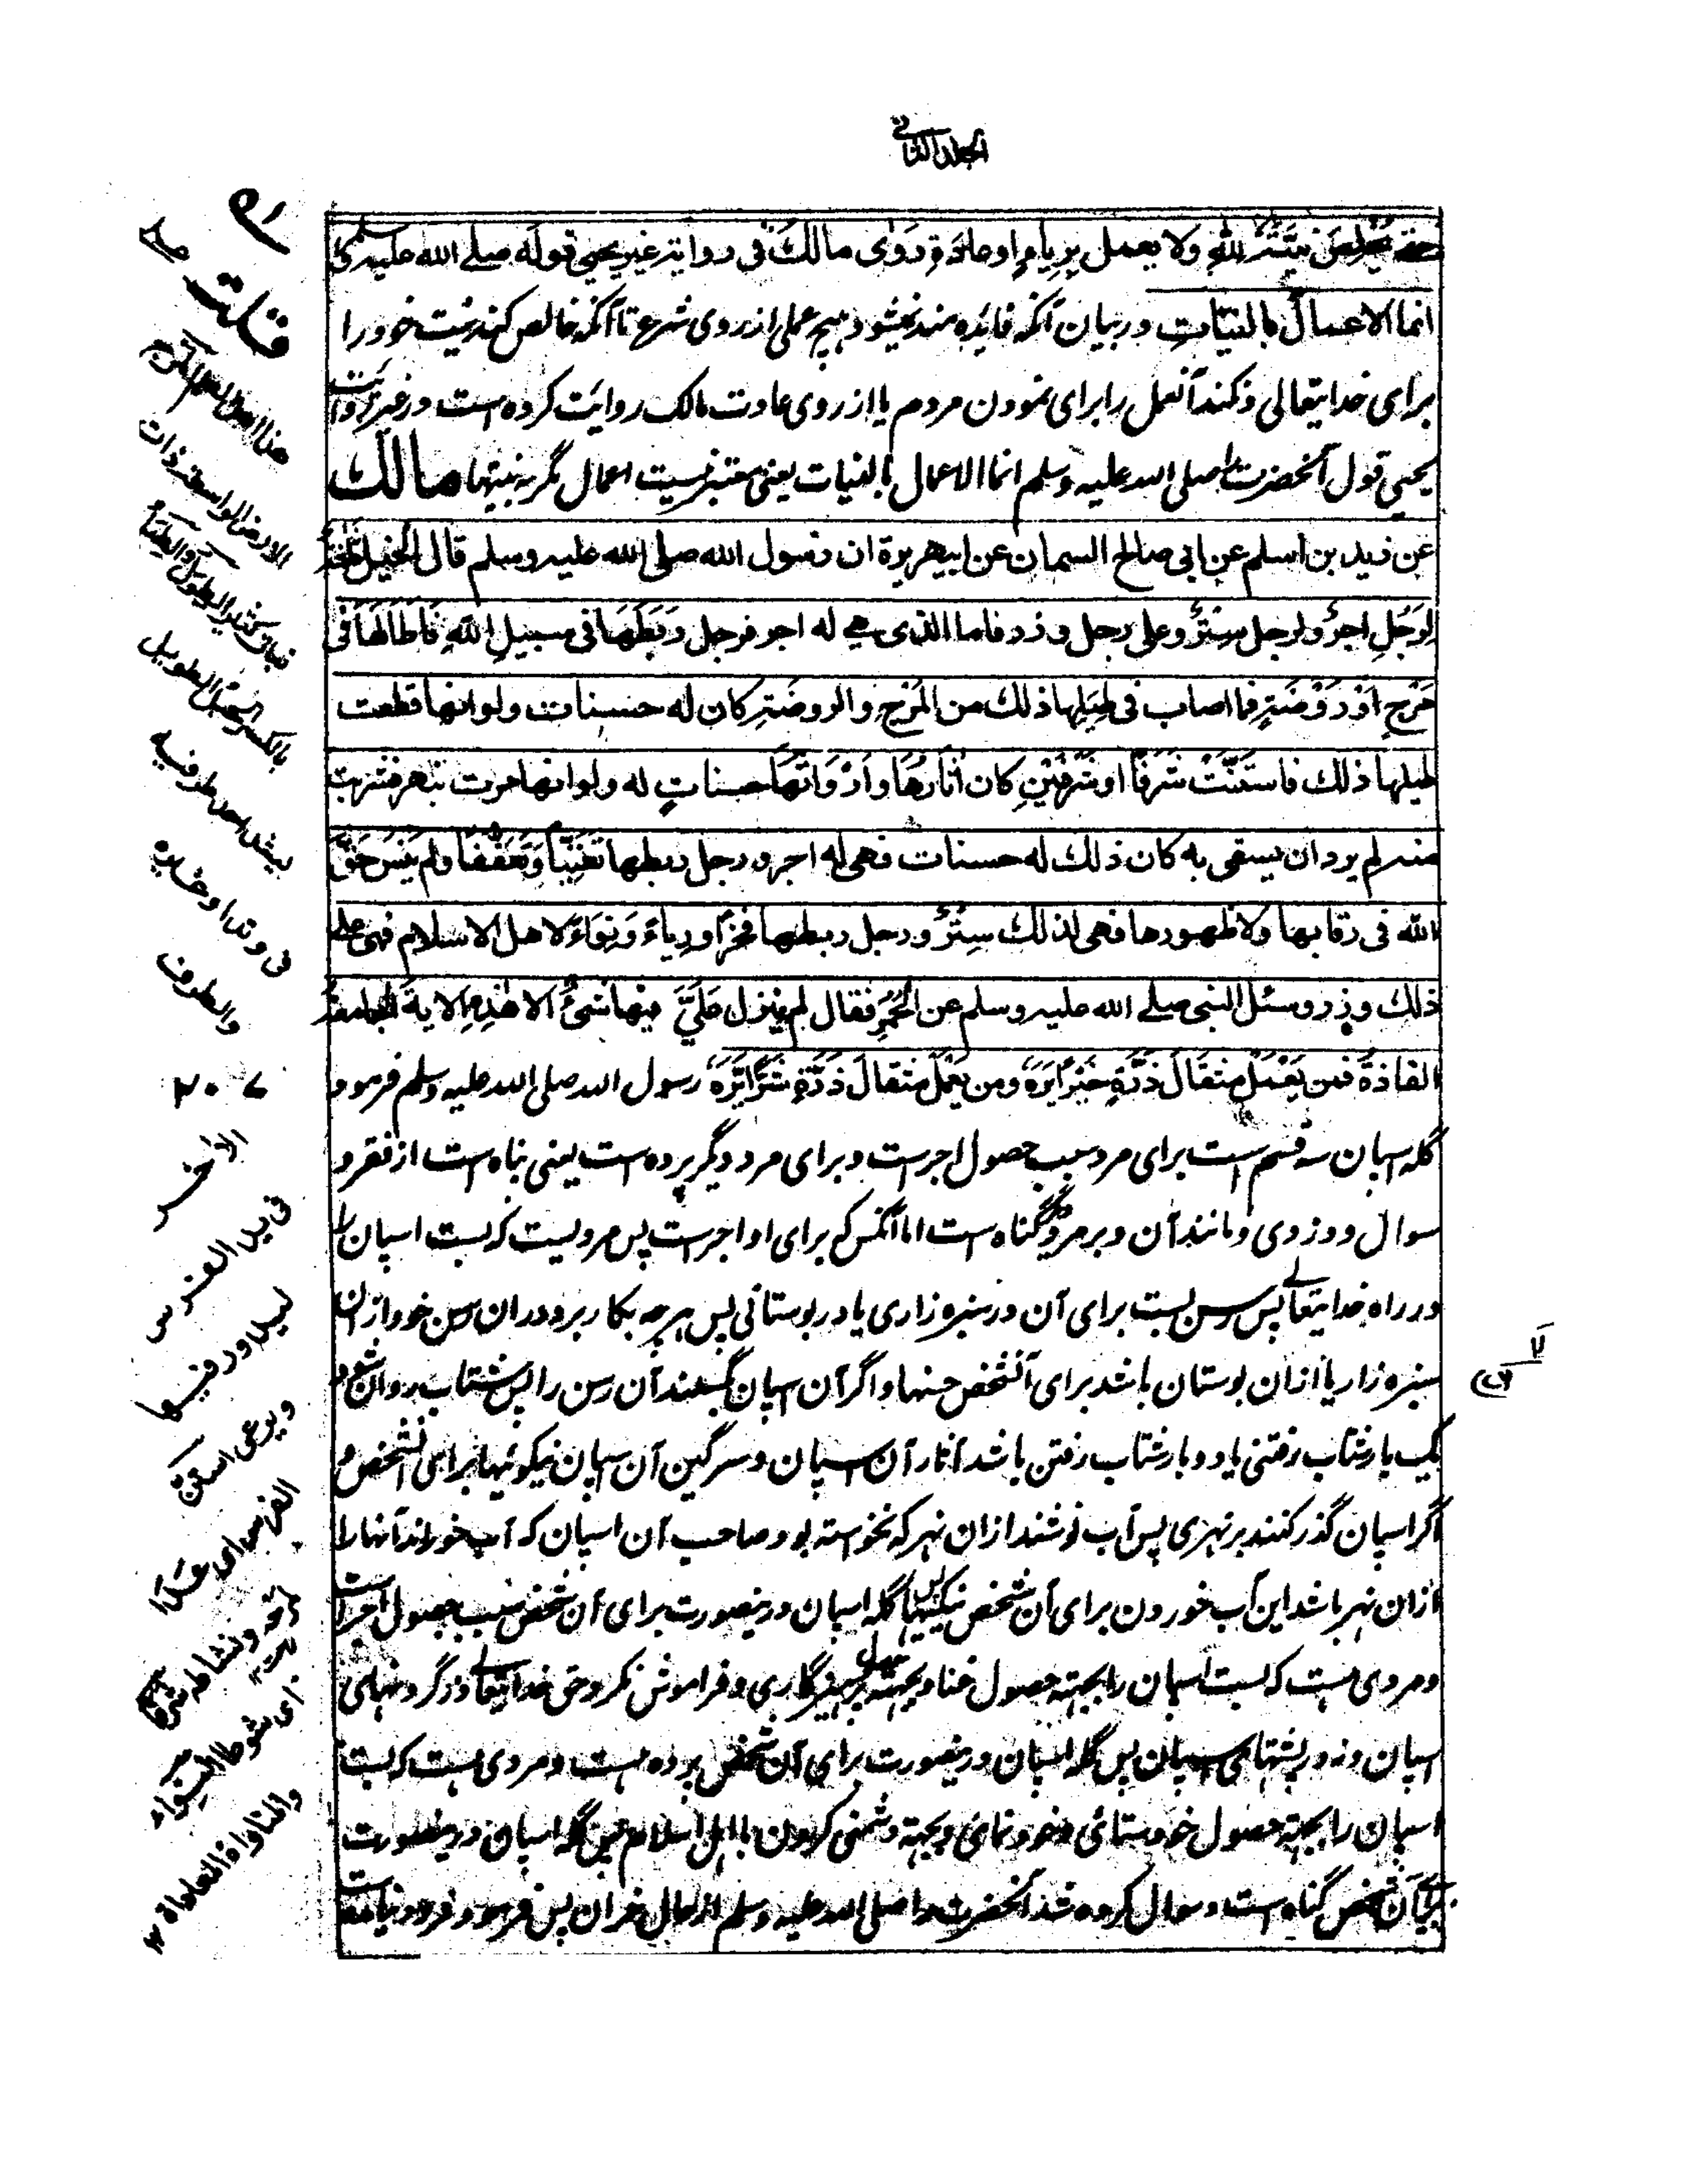 المجلد الثانی
حتی یخلص نیته لله ولا یعمل بریاءٍ او عادة روی مالك فی روایة غیر یحیی قوله صلے الله علیه وسلم
انما الاعمال بالنیّاتِ دربیان آنکه فائده مند نمیشود هیچ عملی از روی شرع تا آنکه خالص کند نیت خود را
برای خدایتعالی و نکند آنعمل را برای نمودن مردم یا از روی عادت مالک روایت کرده است در غیر روایت
یحیی قول آنحضرت صلی الله علیه وسلم انما الاعمال بالنیات یعنی معتبر نیست اعمال مگر به نیتها مالك
عن زید بن اسلم عن ابی صالح السمان عن ابیهریرة ان رسول الله صلی الله علیه وسلم قال الخیل ثلثة
لِرَجُلِ اجرٌ ولرجل سِتْرٌ وعلی رجل وزر فاما الذی هے له اجر فرجل رَبَطَهَا فی سبیلِ اللهِ فَاَطَالَهَا فی
مَرْجٍ اَوْ رَوْضَةٍ فما اصاب فی طِیَلِها ذلك من المَرْجِ والروضَةِ کان له حسنات ولو انها قطعت
طیلها ذلك فاستَنَّتْ شَرَفًا او شَرَفَیْنِ کان اٰثارُهَا واَرْوَاثُهَا حسناتٍ له ولو انها مرت بنهر فشربت
منه لم یرد ان یسقی به کان ذلك له حسنات فهی له اجر ورجل ربطها تَغَنِّیًا وَتَعَفُّفًا ولم یَنْسَ حَقَّ
الله فی رقابها ولا ظهورها فهی لذلك سِتْرٌ ورجل ربطها فَخْرًا ورِیاءً وَنِوَاءً لاهل الاسلام فهی علی
ذلك وِزر وسئل النبی صلے الله علیه وسلم عن الحُمُرِ فقال لم ینزل عَلَیَّ فیها شیءٌ الا هٰذِهِ الایةُ الجامعةُ
الفاذةُ فمن یَعْمَلْ مثقَالَ ذَرَّةٍ خَیْرًا یَرَهٗ ومن یَعْمَلْ مثقالَ ذَرَّةٍ شَرًّا یَّرَهٗ رسول الله صلی الله علیه وسلم فرمود
گله اسپان سه قسم است برای مرد سبب حصول اجرست و برای مرد دیگر پرده است یعنی پناه است از فقر و
سوال و دزدی و مانند آن و بر مرد دیگر گناه است اما آنکس که برای او اجرست پس مردیست که بست اسپان را
در راه خدایتعالے پس رسن بست برای آن در سبزه زاری یا در بوستانی پس هرچه بکار برد در ان رسن خود از ان
سبزه زار یا ازان بوستان باشد برای آنشخص حسنها و اگر آن اسپان بگسلند آن رسن را پس بشتاب روان شود
یک بار شتاب رفتنی یا دو بار شتاب رفتن باشد آثار آن اسپان و سرگین آن اسپان نیکوئیها برای آنشخص و
اگر اسپان گذر کنند بر نهری پس آب نوشند ازان نهر که نخواسته بود صاحب آن اسپان که آب خوراند آنها را
ازان نهر باشد این آب خوردن برای آن شخص نیکیها پس گله اسپان درینصورت برای آن شخص سبب حصول اجر است
و مردی هست که بست اسپان را بجهة حصول غنا و بجهة پرهیزگاری و فراموش نکرد حق خدایتعالے در گردنهای
اسپان و نه در پشتهای اسپان پس گله اسپان درینصورت برای آن شخص پرده هست و مردی هست که بست
اسپان را بجهة حصول خودستائی و خودنمائی و بجهة دشمنی کردن با اهل اسلام پس گله اسپان درینصورت
برای آن شخص گناه است و سوال کرده شد آنحضرت را صلی الله علیه وسلم از حال خران پس فرمود فرود نیامده
قلت
هذا
الارض الواسعة ذات
نبات کثیر الطول والطیل
بالکسر الحبل الطویل
یشد احد طرفیه
فی وتد او غیره
والطرف
الاخر
فی ید الفرس
لیدور فیها
ویرعی استن
الفرس ای عدا
لمرحه ونشاطه شرفا
ای شوطا النواء
والمناواة المعاداة ۱۲